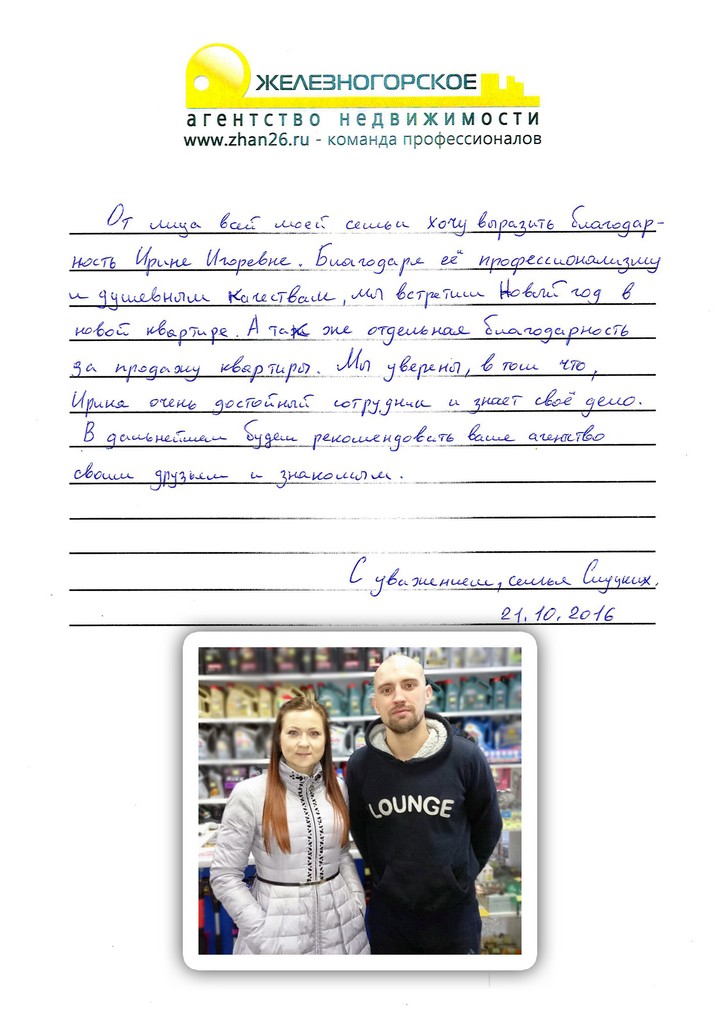 ЖЕЛЕЗНОГОРСКОЕ
агентство недвижимости
www.zhan26.ru - команда профессионалов
От лица всей моей семьи хочу выразить благодар-
ность Ирине Игоревне. Благодаря её профессионализму
и душевным качествам, мы встретили Новый год в
новой квартире. А так же отдельная благодарность
за продажу квартиры. Мы уверены, в том что,
Ирина очень достойный сотрудник и знает своё дело.
В дальнейшем будем рекомендовать ваше агенство
своим друзьям и знакомым.
С уважением, семья Слуцких.
21.10.2016
LOUNGE